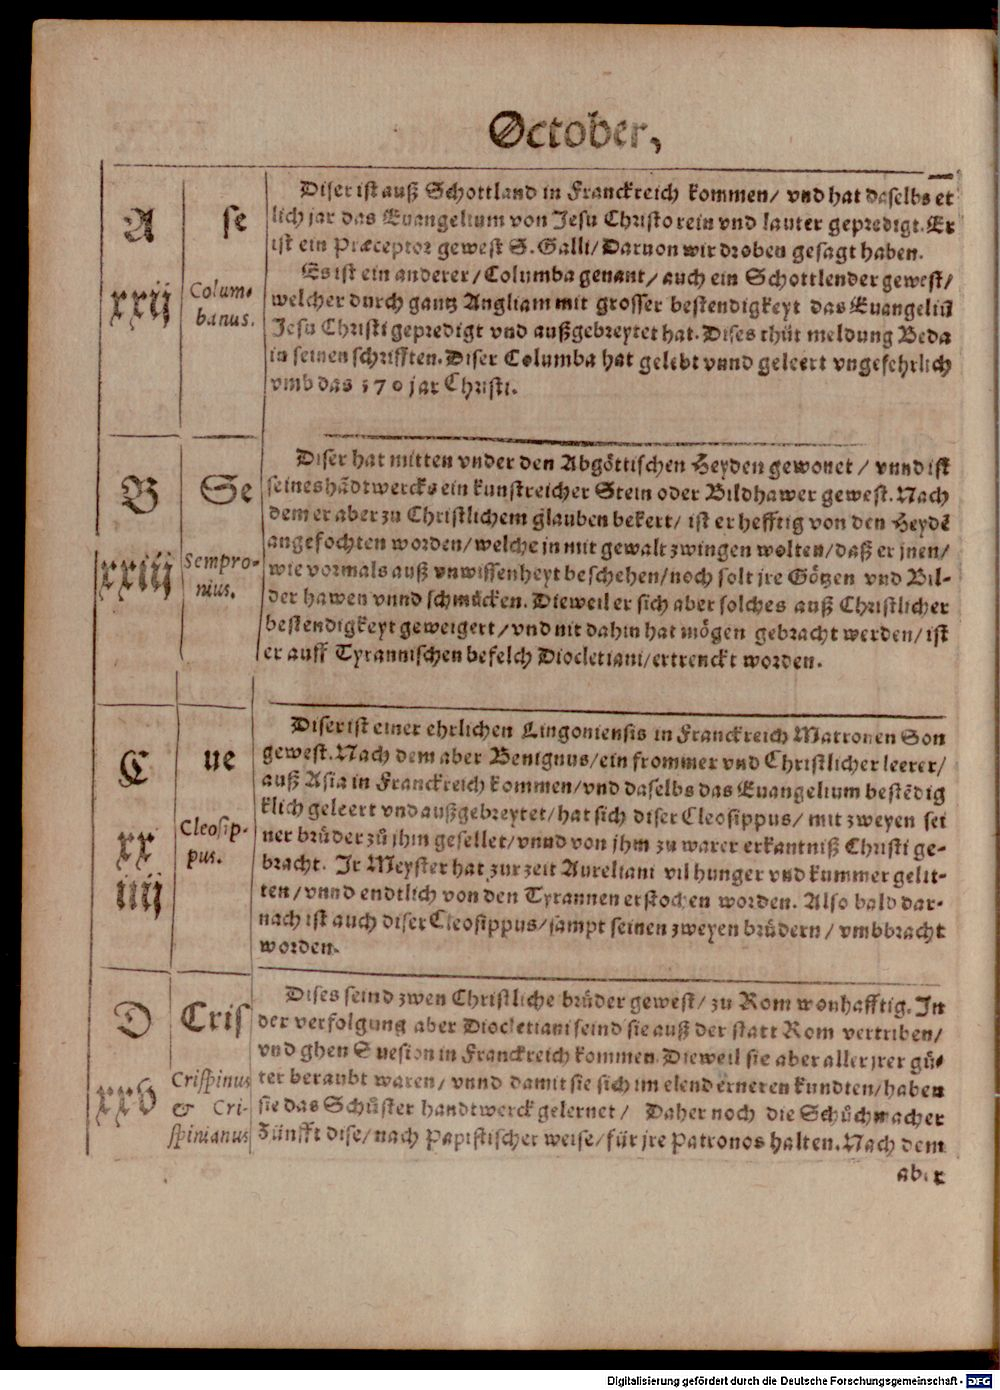 October,
A
se
xxij
Colum-
banus.
Diser ist auß Schottland in Franckreich kommen/ vnd hat daselbs et
lich jar das Euangelium von Jesu Christo rein vnd lauter gepredigt. Er
ist ein Præceptor gewest S. Galli/ Daruon wir droben gesagt haben.
Es ist ein anderer/ Columba genant/ auch ein Schottlender gewest/
welcher durch gantz Angliam mit grosser bestendigkeyt das Euangeliū
Jesu Christi gepredigt vnd außgebreytet hat. Dises thůt meldung Beda
in seinen schrifften. Diser Columba hat gelebt vnnd geleert vngefehrlich
vmb das 570 jar Christi.
B
Se
xxiij
Sempro-
nius.
Diser hat mitten vnder den Abgöttischen Heyden gewonet/ vnnd ist
seines hādtwercks ein kunstreicher Stein oder Bildhawer gewest. Nach
dem er aber zu Christlichem glauben bekert/ ist er hefftig von den Heydē
angefochten worden/ welche jn mit gewalt zwingen wolten/ daß er jnen/
wie vormals auß vnwissenheyt beschehen/ noch solt jre Götzen vnd Bil-
der hawen vnnd schmücken. Dieweil er sich aber solches auß Christlicher
bestendigkeyt geweigert/ vnd nit dahin hat mögen gebracht werden/ ist
er auff Tyrannischen befelch Diocletiani/ ertrenckt worden.
C
ue
xx
iiij
Cleosip-
pus.
Diser ist einer ehrlichen Lingoniensis in Franckreich Matronen Son
gewest. Nach dem aber Benignus/ ein frommer vnd Christlicher leerer/
auß Asia in Franckreich kommen/ vnd daselbs das Euangelium bestēdig
klich geleert vnd außgebreytet/ hat sich diser Cleosippus/ mit zweyen sei
ner brüder zů jhm gesellet/ vnnd von jhm zu warer erkantniß Christi ge-
bracht. Jr Meyster hat zur zeit Aureliani vil hunger vnd kummer gelit-
ten/ vnnd endtlich von den Tyrannen erstochen worden. Also bald dar-
nach ist auch diser Cleosippus/ sampt seinen zweyen brüdern/ vmbbracht
worden.
D
Cris
xxv
Crispinus
& Cri-
spinianus
Dises seind zwen Christliche brüder gewest/ zu Rom wonhafftig. In
der verfolgung aber Diocletiani seind sie auß der statt Rom vertriben/
vnd ghen Suesion in Franckreich kommen. Dieweil sie aber aller jrer gü-
ter beraubt waren/ vnnd damit sie sich im elend erneren kundten/ haben
sie das Schůster handtwerck gelernet/ Daher noch die Schůchmacher
Zünfft dise/ nach Papistischer weise/ für jre Patronos halten. Nach dem
aber
Digitalisierung gefördert durch die Deutsche Forschungsgemeinschaft - DFG